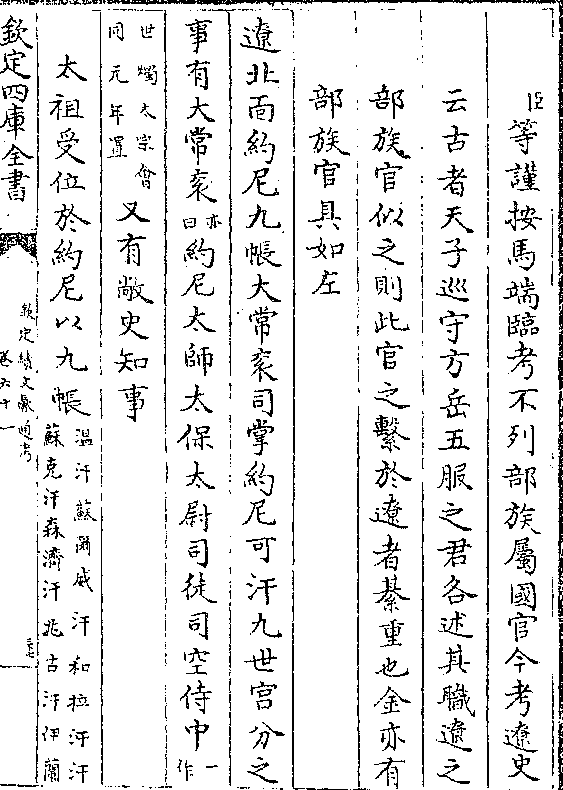 臣等謹按馬端臨考不列部族屬國官今考遼史
云古者天子巡守方岳五服之君各述其職遼之
部族官似之則此官之繫於遼者綦重也金亦有
部族官具如左
遼北面約尼九帳大常衮司掌約尼可汗九世宫分之
事有大常衮亦曰約尼太師太保太尉司徒司空侍中一作
世燭太宗會同元年置又有敞史知事
太祖受位於約尼以九帳温汗蘇爾威汗和拉汗汗蘇克汗森濟汗兆古汗伊蘭
欽定四庫全書
欽定續文獻通考
卷六十一